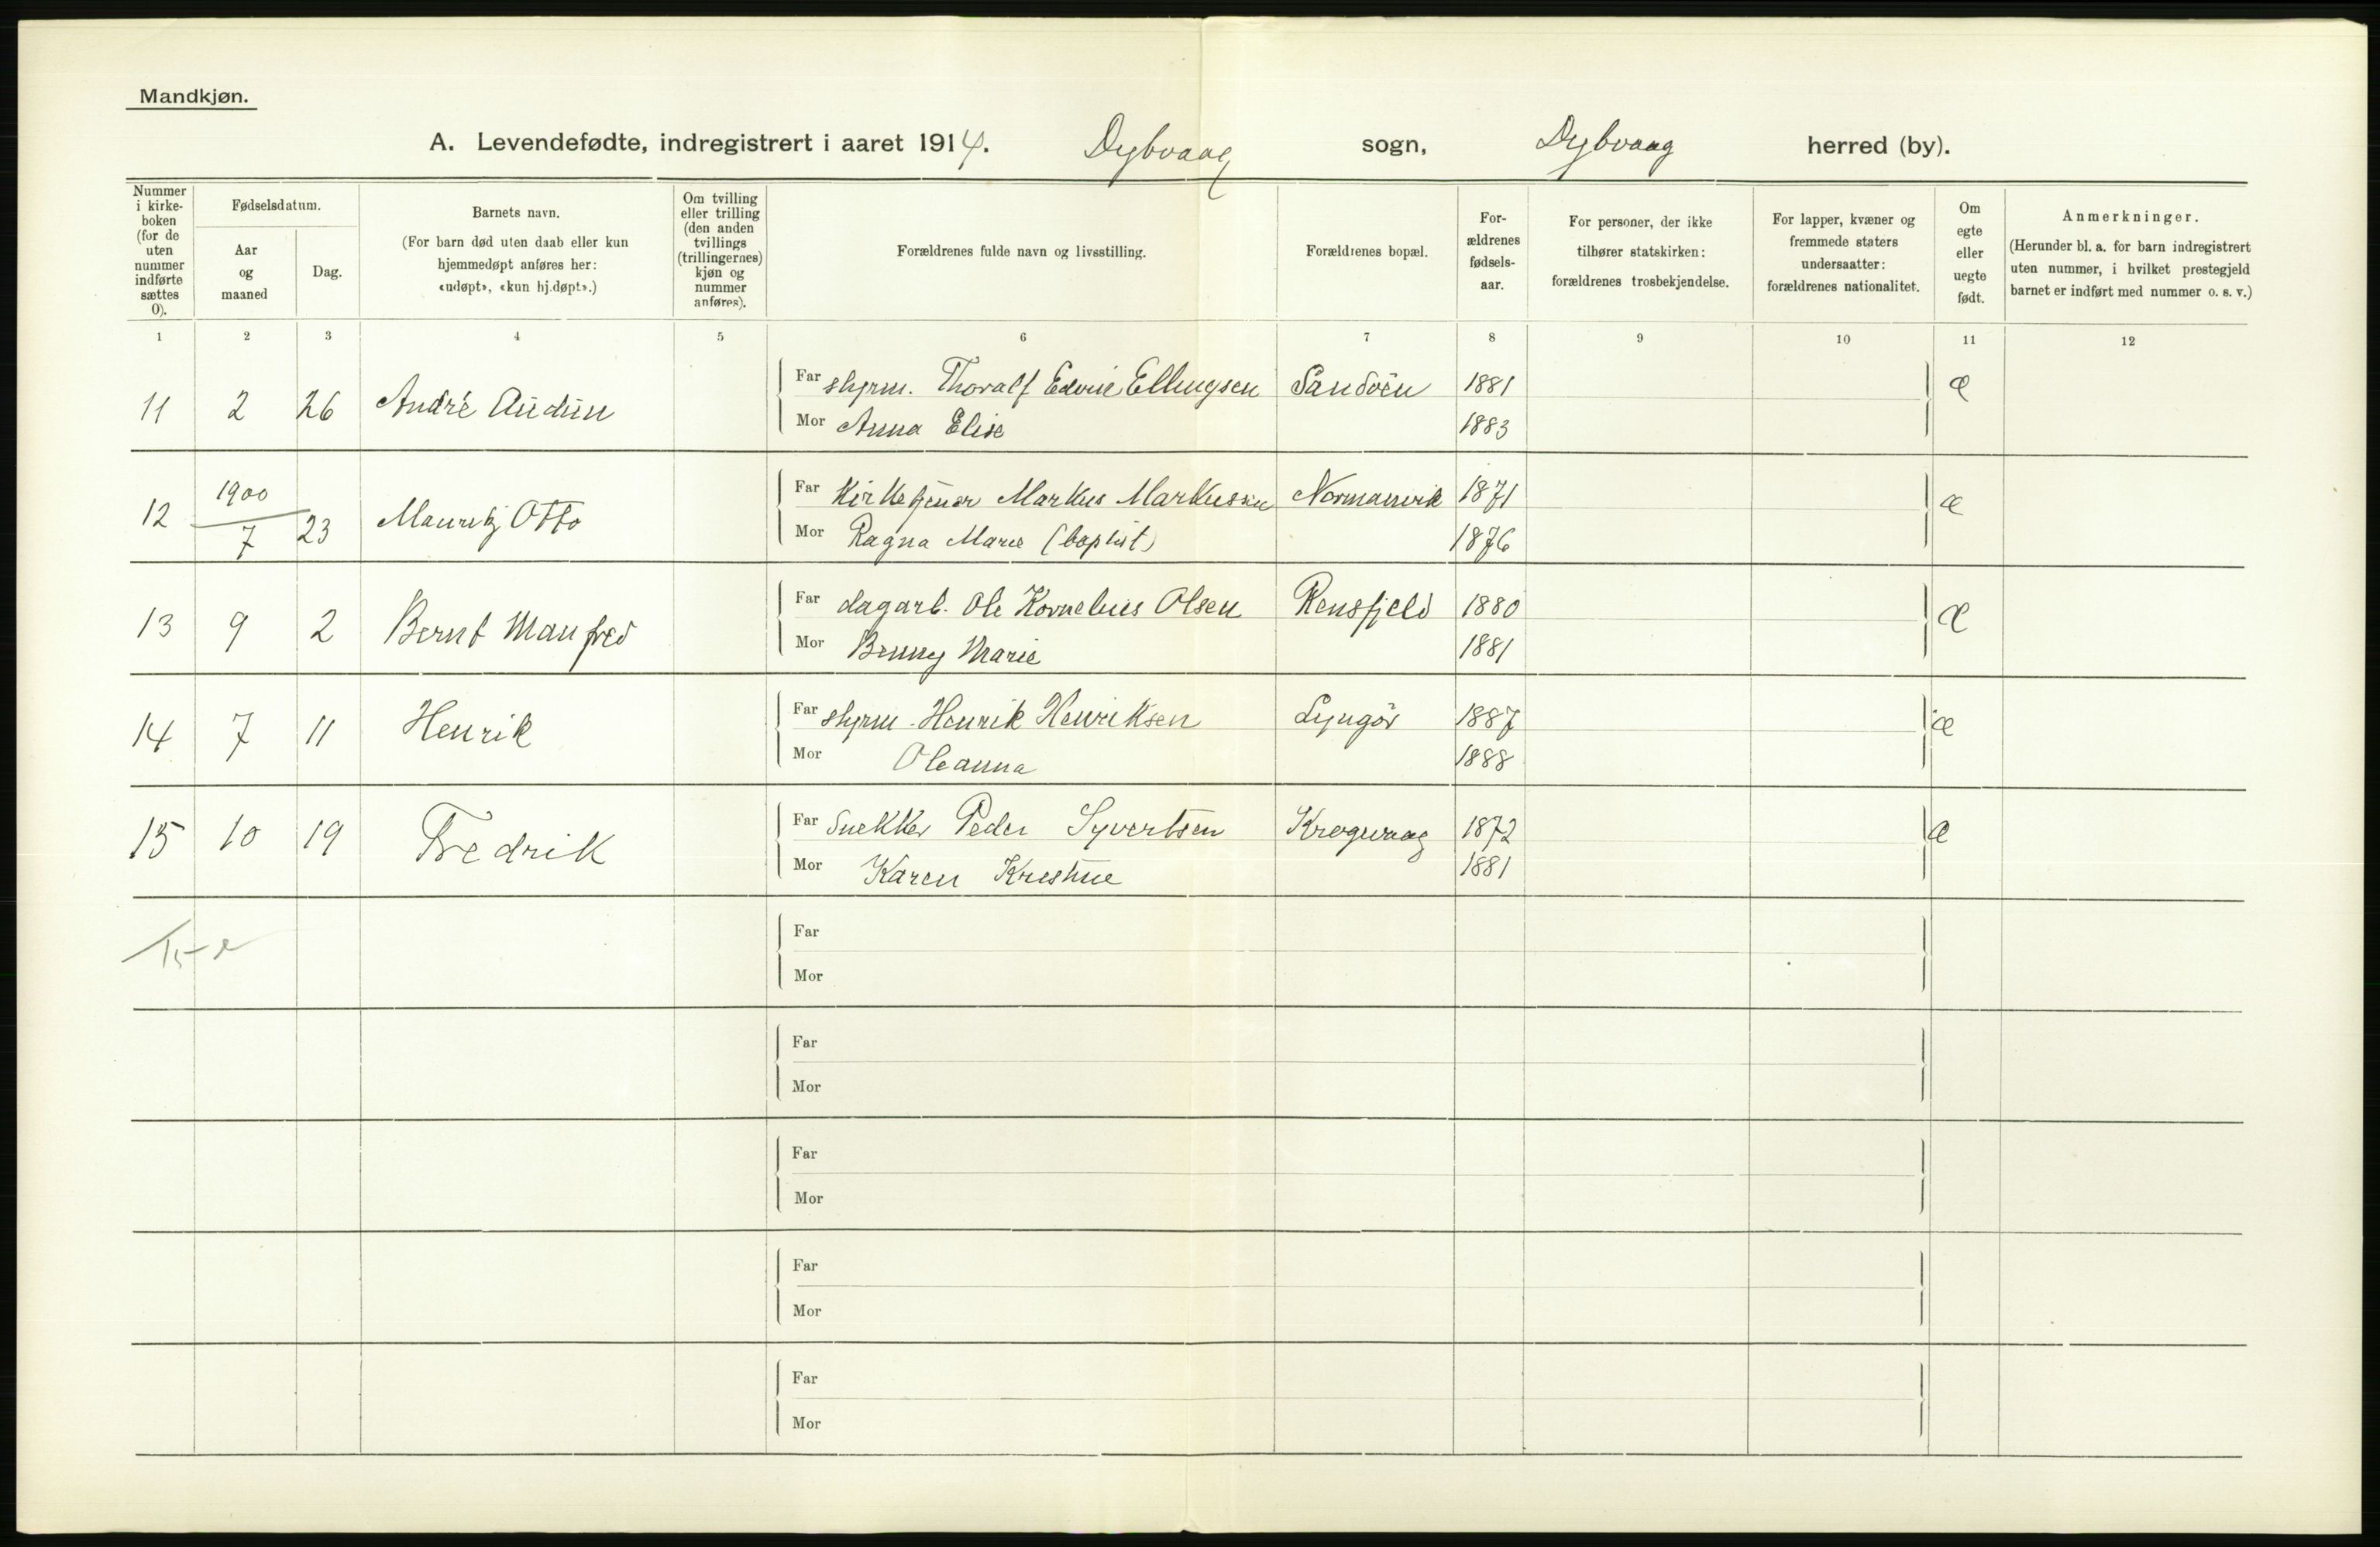 Mandkjøn.
A. Levendefødte, indregistrert i aaret 1914. Dybvaag sogn, Dybvaag herred (by).
Nummer i kirke-boken (for de uten nummer indførte sættes 0).
Fødselsdatum.
Aar og maaned
Dag.
Barnets navn.
(For barn død uten daab eller kun hjemmedøpt anføres her: «udøpt», «kun hj.døpt».)
Om tvilling eller trilling (den anden tvillings (trillingernes) kjøn og nummer anføres).
Forældrenes fulde navn og livsstilling.
Forældrenes bopæl.
For-ældrenes fødsels-aar.
For personer, der ikke tilhører statskirken: forældrenes trosbekjendelse.
For lapper, kvæner og fremmede staters undersaatter: forældrenes nationalitet.
Om egte eller uegte født.
Anmerkninger.
(Herunder bl. a. for barn indregistrert uten nummer, i hvilket prestegjeld barnet er indført med nummer o. s. v.)
1 2 3 4 5 6 7 8 9 10 11 12
11 2 26 André Audun Far styrm. Thoralf Edvin Ellingsen Sandöen 1881 Æ
Mor Anna Elise 1883
12 1900/7 23 Mauritz Otto Far Kirketjener Markus Markussen Normanvik 1871 Æ
Mor Ragna Marie (baptist) 1876
13 9 2 Bernt Manfred Far dagarb. Ole Kornelius Olsen Rensfjeld 1880 Æ
Mor Benny Marie 1881
14 7 11 Henrik Far styrm. Henrik Henriksen Lyngör 1887 Æ
Mor Oleanna 1888
15 10 19 Fredrik Far Snekker Peder Syvertsen Krogvaag 1872 Æ
Mor Karen Kristine 1881
Far
Mor
Far
Mor
Far
Mor
Far
Mor
Far
Mor